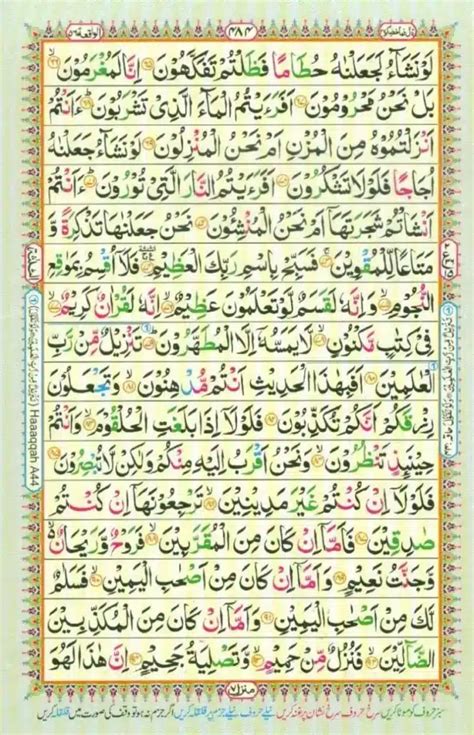 الواقعة ٥٦
٤٨٤
لَوْ نَشَآءُ لَجَعَلْنٰهُ حُطَامًا فَظَلْتُمْ تَفَكَّهُوْنَ ۝ اِنَّا لَمُغْرَمُوْنَ ۝
بَلْ نَحْنُ مَحْرُوْمُوْنَ ۝ اَفَرَءَيْتُمُ الْمَآءَ الَّذِيْ تَشْرَبُوْنَ ۝ ءَاَنْتُمْ
اَنْزَلْتُمُوْهُ مِنَ الْمُزْنِ اَمْ نَحْنُ الْمُنْزِلُوْنَ ۝ لَوْ نَشَآءُ جَعَلْنٰهُ
اُجَاجًا فَلَوْلَا تَشْكُرُوْنَ ۝ اَفَرَءَيْتُمُ النَّارَ الَّتِيْ تُوْرُوْنَ ۝ ءَاَنْتُمْ
اَنْشَاْتُمْ شَجَرَتَهَاۤ اَمْ نَحْنُ الْمُنْشِـُٔوْنَ ۝ نَحْنُ جَعَلْنٰهَا تَذْكِرَةً وَّ
مَتَاعًا لِّلْمُقْوِيْنَ ۝ فَسَبِّحْ بِاسْمِ رَبِّكَ الْعَظِيْمِ ۝ فَلَاۤ اُقْسِمُ بِمَوٰقِعِ
النُّجُوْمِ ۝ وَاِنَّهٗ لَقَسَمٌ لَّوْ تَعْلَمُوْنَ عَظِيْمٌ ۝ اِنَّهٗ لَقُرْاٰنٌ كَرِيْمٌ ۝
فِيْ كِتٰبٍ مَّكْنُوْنٍ ۝ لَّا يَمَسُّهٗۤ اِلَّا الْمُطَهَّرُوْنَ ۝ تَنْزِيْلٌ مِّنْ رَّبِّ
الْعٰلَمِيْنَ ۝ اَفَبِهٰذَا الْحَدِيْثِ اَنْتُمْ مُّدْهِنُوْنَ ۝ وَتَجْعَلُوْنَ
رِزْقَكُمْ اَنَّكُمْ تُكَذِّبُوْنَ ۝ فَلَوْلَاۤ اِذَا بَلَغَتِ الْحُلْقُوْمَ ۝ وَاَنْتُمْ
حِيْنَئِذٍ تَنْظُرُوْنَ ۝ وَنَحْنُ اَقْرَبُ اِلَيْهِ مِنْكُمْ وَلٰكِنْ لَّا تُبْصِرُوْنَ ۝
فَلَوْلَاۤ اِنْ كُنْتُمْ غَيْرَ مَدِيْنِيْنَ ۝ تَرْجِعُوْنَهَاۤ اِنْ كُنْتُمْ
صٰدِقِيْنَ ۝ فَاَمَّاۤ اِنْ كَانَ مِنَ الْمُقَرَّبِيْنَ ۝ فَرَوْحٌ وَّرَيْحَانٌ ۙ۬ وَّ
جَنَّتُ نَعِيْمٍ ۝ وَاَمَّاۤ اِنْ كَانَ مِنْ اَصْحٰبِ الْيَمِيْنِ ۝ فَسَلٰمٌ
لَّكَ مِنْ اَصْحٰبِ الْيَمِيْنِ ۝ وَاَمَّاۤ اِنْ كَانَ مِنَ الْمُكَذِّبِيْنَ
الضَّآلِّيْنَ ۝ فَنُزُلٌ مِّنْ حَمِيْمٍ ۝ وَّتَصْلِيَةُ جَحِيْمٍ ۝ اِنَّ هٰذَا لَهُوَ
Haaaqqah A44